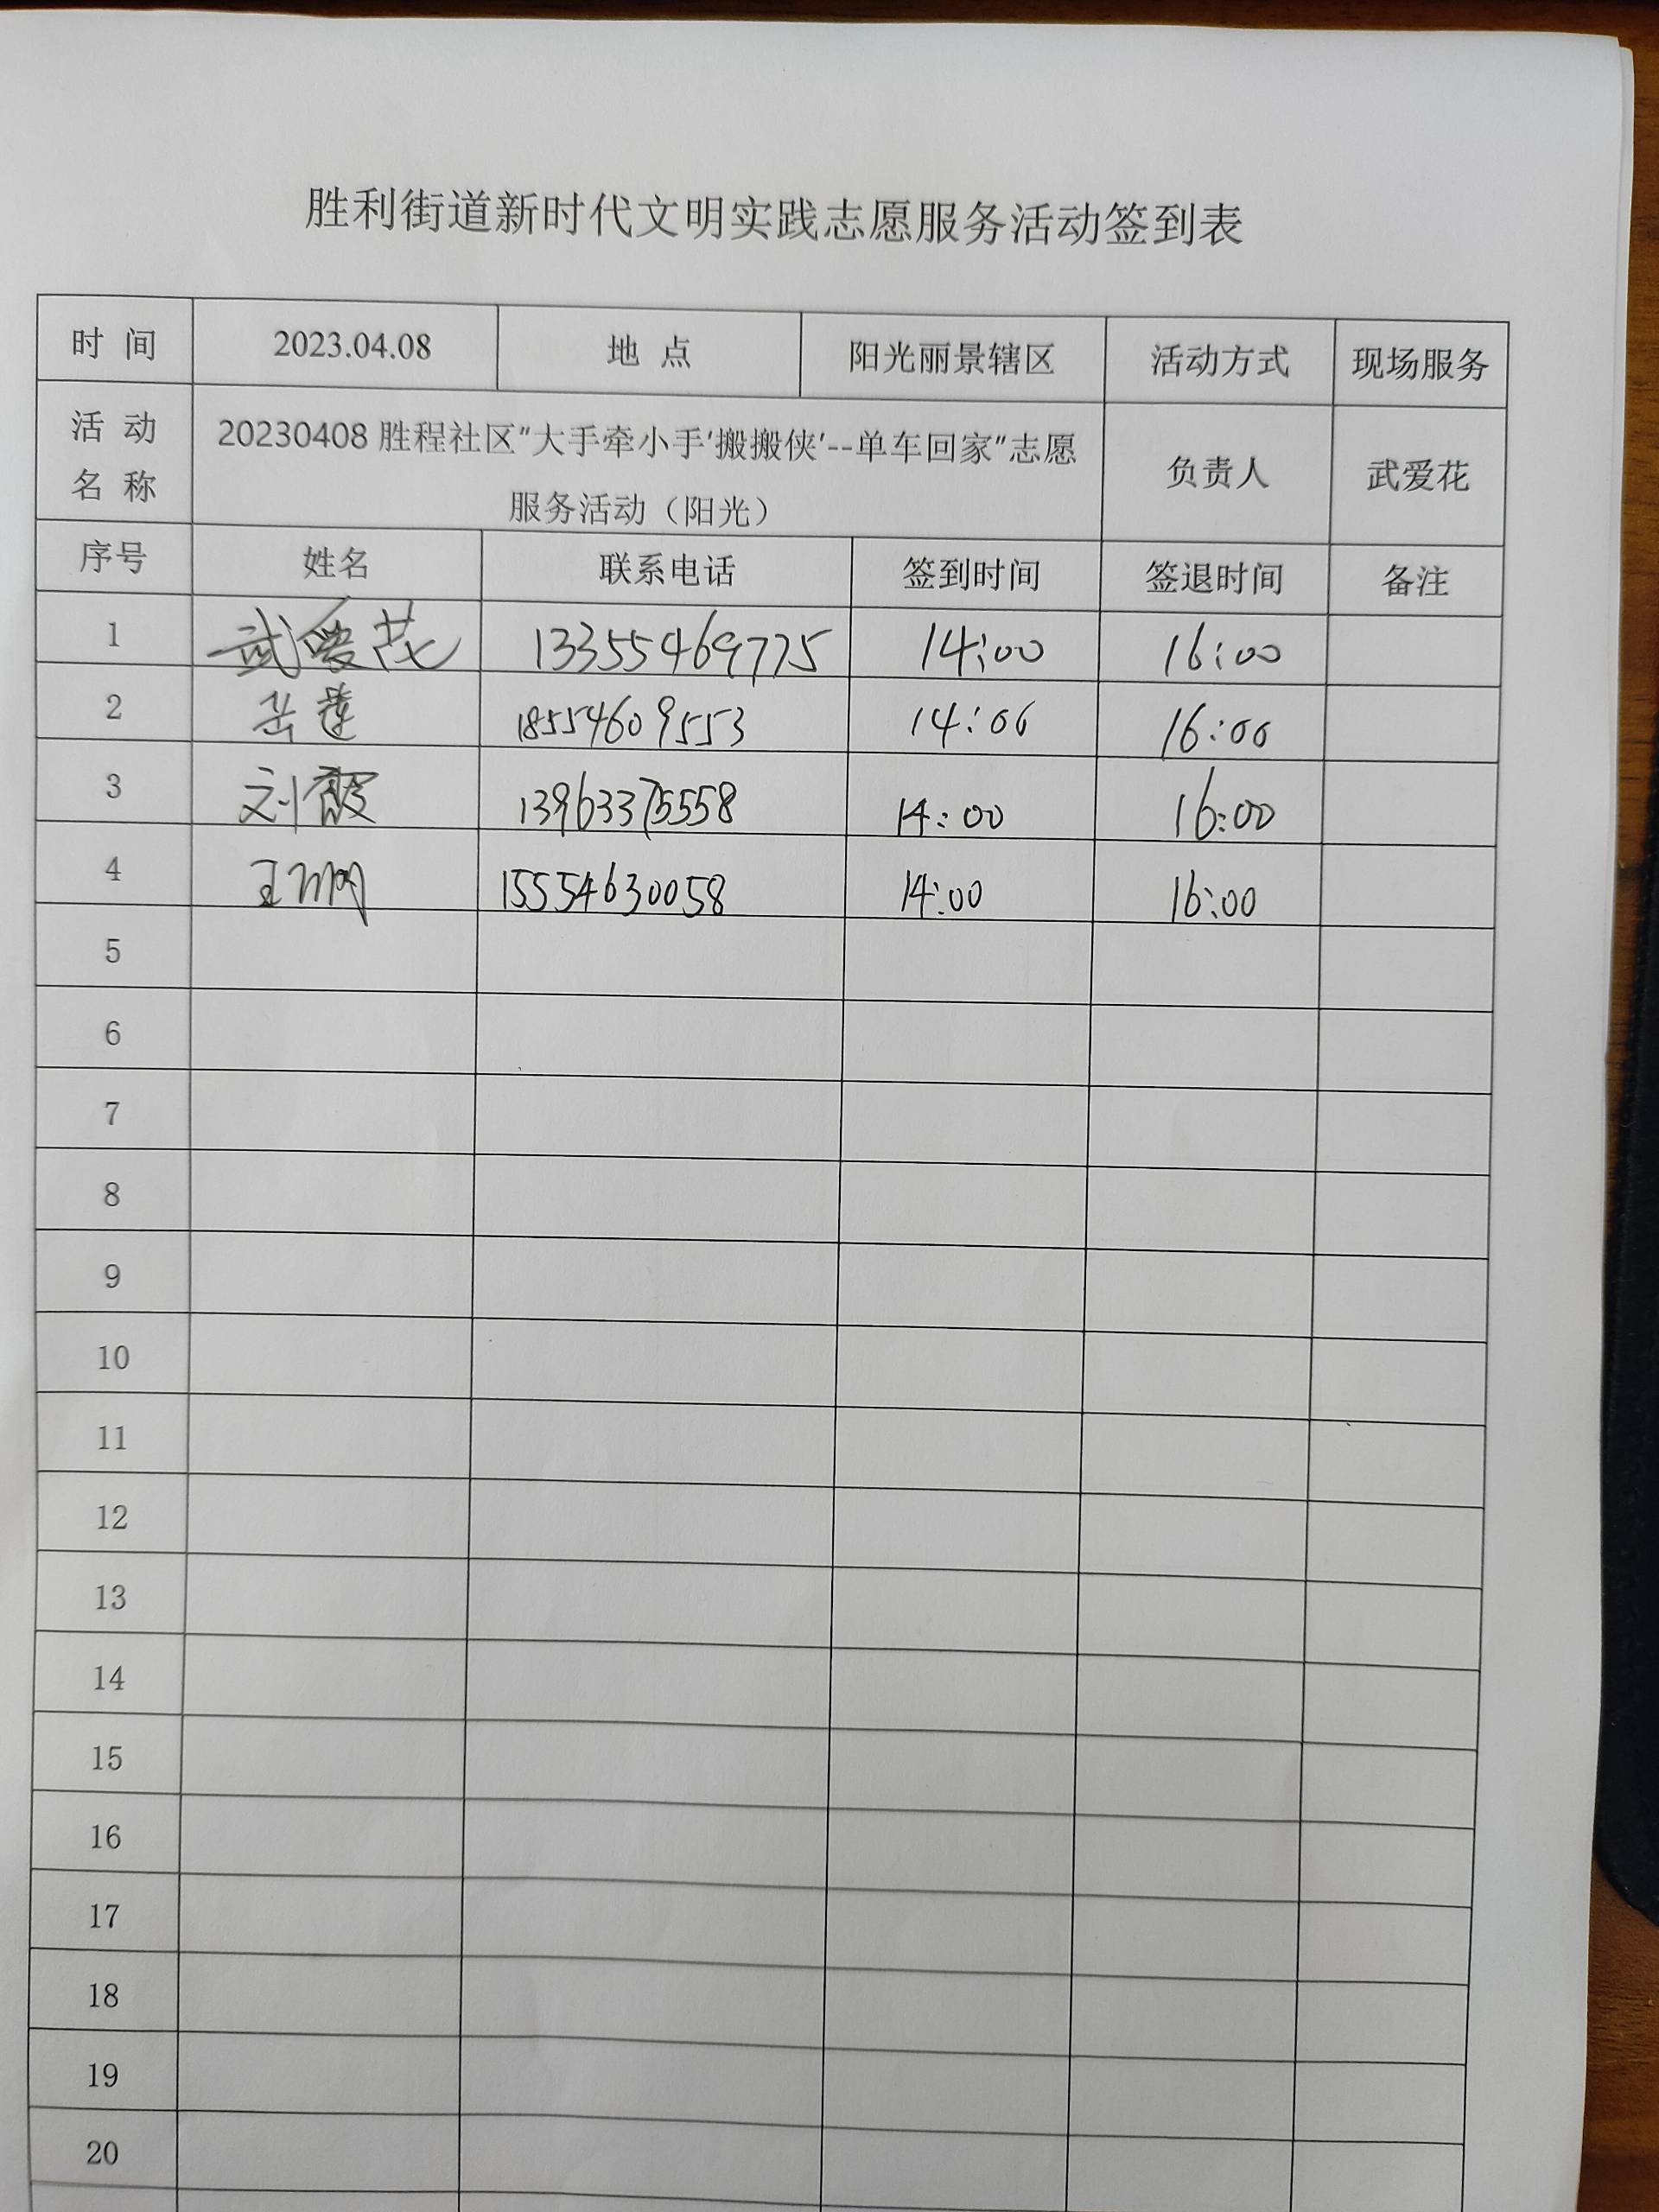 胜利街道新时代文明实践志愿服务活动签到表
时 间 2023.04.08 地 点 阳光丽景辖区 活动方式 现场服务
活 动 名 称 20230408 胜程社区"大手牵小手'搬搬侠'--单车回家"志愿
服务活动（阳光） 负责人 武爱花
序号 姓名 联系电话 签到时间 签退时间 备注
1 武爱花 13355469775 14:00 16:00
2 岳莲 18554609553 14:00 16:00
3 刘霞 13963375558 14:00 16:00
4 王 15554630058 14:00 16:00
5
6
7
8
9
10
11
12
13
14
15
16
17
18
19
20